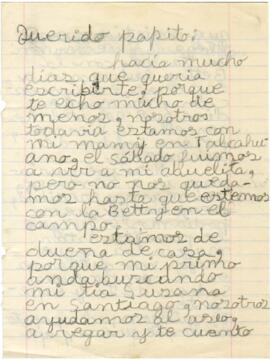 Querido papito:
hacía mucho
días que quería
escribirte, porque
te echo mucho de
menos, nosotros
todavía estamos con
mi mamy en Talcahu-
ano, el sábado fuimos
a ver a mi abuelita,
pero no nos queda-
mos, hasta que estemos
con la Betty en el
campo.
estamos de
duena de casa,
porque mi primo
anda buscando
mi tía Susana
en Santiago, nosotros
ayudamos al aseo,
a regar y te cuento